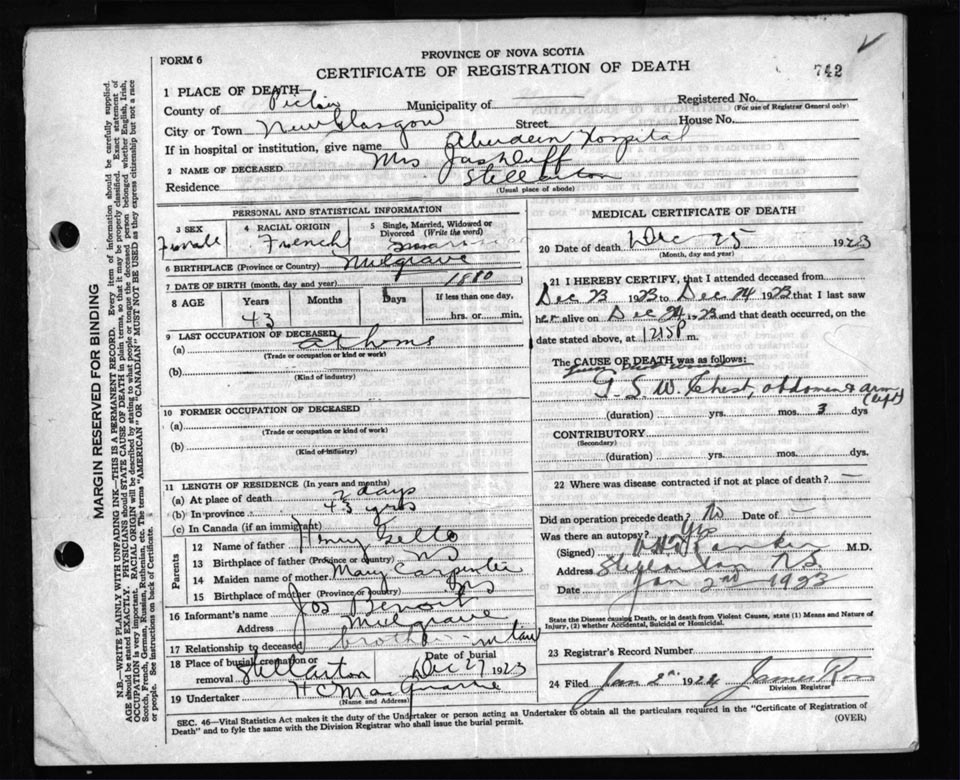 FORM 6
PROVINCE OF NOVA SCOTIA
CERTIFICATE OF REGISTRATION OF DEATH
742
1 PLACE OF DEATH—
County of Pictou Municipality of Registered No.
(For use of Registrar General only)
City or Town New Glasgow Street House No.
If in hospital or institution, give name Aberdeen Hospital
2 NAME OF DECEASED Mrs
Residence Stellarton
(Usual place of abode)
PERSONAL AND STATISTICAL INFORMATION
3 SEX Female
4 RACIAL ORIGIN French
5 Single, Married, Widowed or Divorced (Write the word)
6 BIRTHPLACE (Province or Country) Mulgrave
7 DATE OF BIRTH (month, day and year) 1880
8 AGE Years Months Days If less than one day,
43 hrs. or min.
9 LAST OCCUPATION OF DECEASED
(a) at home
(Trade or occupation or kind or work)
(b)
(Kind of industry)
10 FORMER OCCUPATION OF DECEASED
(a)
(Trade or occupation or kind of work)
(b)
(Kind of industry)
11 LENGTH OF RESIDENCE (In years and months)
(a) At place of death 2 days
(b) In province 43 yrs
(c) In Canada (if an immigrant)
Parents
12 Name of father Henry
13 Birthplace of father (Province or country) NS
14 Maiden name of mother Mary Carpenter
15 Birthplace of mother (Province or country) NS
16 Informant's name Jos Benoit
Address Mulgrave
17 Relationship to deceased brother in law
18 Place of burial, cremation or removal Stellarton Date of burial Dec 27 1923
19 Undertaker
(Name and Address)
MEDICAL CERTIFICATE OF DEATH
20 Date of death Dec 25 1923
(Month, day and year)
21 I HEREBY CERTIFY, that I attended deceased from
Dec 23 1923 to Dec 24 1923 that I last saw
her alive on Dec 24 1923 and that death occurred, on
date stated above, at 1215P m.
The CAUSE OF DEATH was as follows:
G.S.W. Chest, abdomen & arm (left)
(duration) yrs. mos. 3 dys
CONTRIBUTORY
(Secondary)
(duration) yrs. mos. dys.
22 Where was disease contracted if not at place of death? —
Did an operation precede death? No Date of —
Was there an autopsy? Yes
(Signed) M.D.
Address Stellarton NS
Date Jan 2nd 1923
State the Disease causing Death, or in death from Violent Causes, state (1) Means and Nature of Injury, (2) whether Accidental, Suicidal or Homicidal.
23 Registrar's Record Number
24 Filed Jan 2 1924 James Ross
Division Registrar
SEC. 46—Vital Statistics Act makes it the duty of the Undertaker or person acting as Undertaker to obtain all the particulars required in the "Certificate of Registration of
Death" and to fyle the same with the Division Registrar who shall issue the burial permit.
(OVER)
MARGIN RESERVED FOR BINDING
N.B.—WRITE PLAINLY WITH UNFADING INK—THIS IS A PERMANENT RECORD. Every item of information should be carefully supplied.
AGE should be stated EXACTLY. PHYSICIANS should STATE CAUSE OF DEATH in plain terms, so that it may be properly classified. Exact statement of
OCCUPATION is very important. RACIAL ORIGIN will be described by stating to what people or tongue the deceased person belonged whether English, Irish,
Scotch, French, German, Russian, Ruthenian, etc. The terms "AMERICAN" OR "CANADIAN" MUST NOT BE USED as they express citizenship but not a race
or people. See Instructions on back of Certificate.